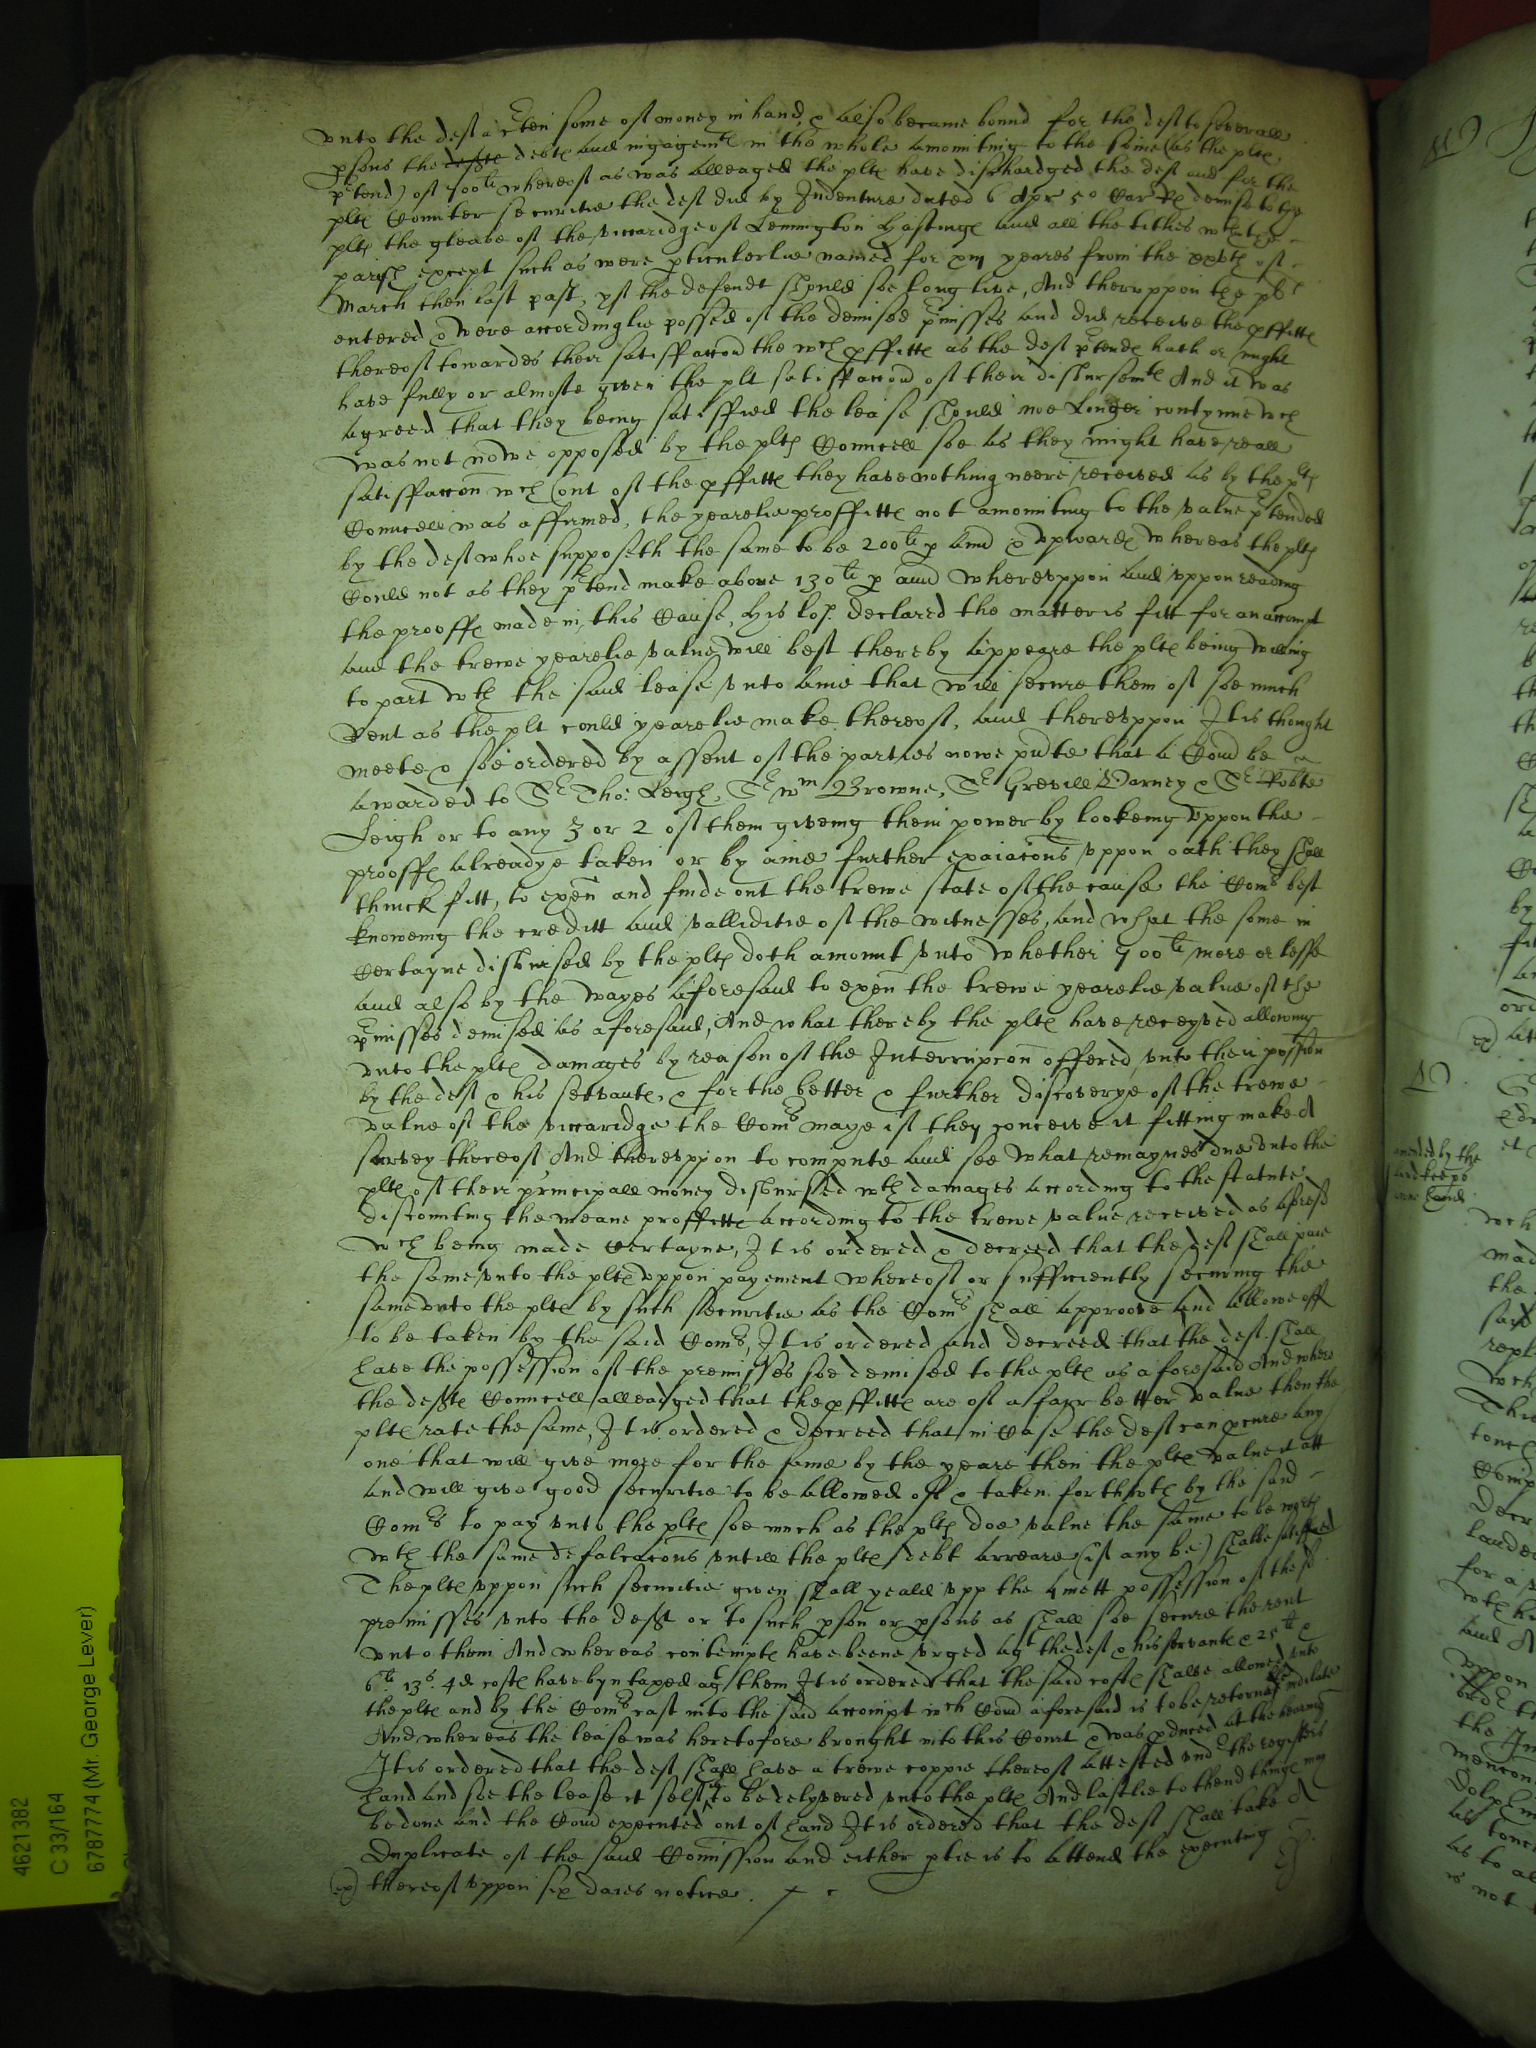 vnto the deft a cten some of money in hand & also became bound for the deft to severall
psons the defte debte and ingagemte in the whole amounting to the some (as the plte
ptend) of 700li whereof as was alleaged the plte have dischardged the deft and for the
plte Counter securitie the deft did by Indenture dated 6 Apr 5o Car Re demise to the
plte the gleabe of the viccaridge of Lemington Hastinge and all the tithes wthin the
parish except such as were pticulerlie named for xiij yeares from the xxvth of
March then last past, yf the defendt should soe long live, And therevppon the plte
entered & were accordinglie possed of the demised pmisses and did receive the pffitte
thereof towardes their satisfaccon the wch pffitte as the deft ptende hath or might
have fully or almoste given the plt satisfaccon of their disbursemte And it was
agreed that they being satisfied the lease should noe longer contynue wch
was not nowe opposed by the plte Councell soe as they might have reall
satisfaccon wch (out of the pffitte they have nothing neere received as by the plte
Councell was affirmed, the yearelie proffitte not amounting to the value ptended
by the deft whoe supposeth the same to be 200li p annu & vpwarde whereas the plte
Could not as they ptend make above 130li p annu wherevppon and vppon reading
the prooffe made in this Cause, His lop. declared the matter is fitt for an accompt
and the trewe yearelie value will best thereby appeare the plte being willing
to part wth the said lease vnto anie that will secure them of soe much
Rent as the plt could yearelie make thereof, and therevppon It is thought
meete & soe ordered by assent of the parties nowe pnte that a Comd be
awarded to Sr Tho: Leigh, Sr Wm Browne, Sr Grevill Varney & Sr Robte
Leigh or to any 3 or 2 of them giveing them power by lookeing vppon the
prooffe alreadye taken or by anie further exaiacons vppon oath they shall
thinck fitt, to exen and finde out the trewe state of the cause the Comrs best
knoweing the creditt and validitie of the witnesses, and what the some in
Certayne disbursed by the plte doth amount vnto whether 700li more or lesse
and also by the wayes aforesaid to exen the trewe yearelie value of the
pmisses demised as aforesaid, And what thereby the plte have receyved allowing
vnto the plte damages by reason of the Interrupcon offered vnto their possion
by the deft & his servante, & for the better & further discoverye of the trewe
value of the viccaridge the Comrs maye if they conceive it fitting make a
survey thereof And therevppon to compute and see what remaynes due vnto the
plte of their principall money disbursed wth damages according to the statute
discounting the meane proffitte according to the trewe value received as aforesd
wch being made Certayne, It is ordered & decreed that the deft shall paie
the same vnto the plte vppon payement whereof or sufficiently securing the
same vnto the plte by such securitie as the Comrs shall approove and allowe off
to be taken by the said Comrs, It is ordered and decreed that the deft shall
have the possession of the premisses soe demised to the plte as aforesaid And where
the defte Councell alleadged that the pffitte are of a farr better value then the
plte rate the same, It is ordered & decreed that in Case the deft can pcure any
one that will give more for the same by the yeare then the plte value it att
and will give good securitie to be allowed of & taken forthwth by the said
Comrs to pay vnto the plte soe much as the plte doe value the same to be worth
wth the same defalcacons vntill the plte debt arreare (if any be) shalbe satisfied
The plte vppon such securitie given shall yeald vpp the quiett possession of the sd
premisses vnto the deft or to such pson or psons as shall soe secure the rent
vnto them And whereas contempte have beene vrged agt the deft & his servante & 25li &
6li 13s. 4d. coste have byn taxed agt them It is ordered that the said coste shalbe allowed vnto
the plte and by the Comrs cast into the said accompt wch Comd aforesaid is to be retorned imediate
And whereas the lease was heretofore brought into this Court & was pduced at the hearing
It is ordered that the deft shall have a trewe coppie thereof attested vndr the registers
hand and soe the lease it self to be delyvered vnto the plte And lastlie to thend thinge may
be done and the Comd executed out of hand It is ordered that the deft shall take a
Duplicate of the said Comission and either ptie is to attend the executing
ex) thereof vppon six daies notice.
4621382
C 33/164
6787774 (Mr. George Lever)
amended by the